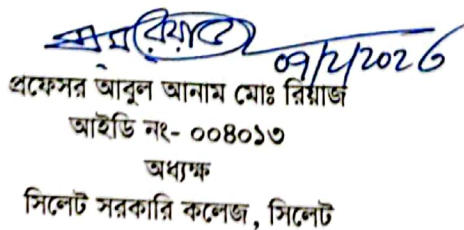 ০৭/২/২০২৬
প্রফেসর আবুল আনাম মোঃ রিয়াজ
আইডি নং- ০০৪০১৩
অধ্যক্ষ
সিলেট সরকারি কলেজ, সিলেট